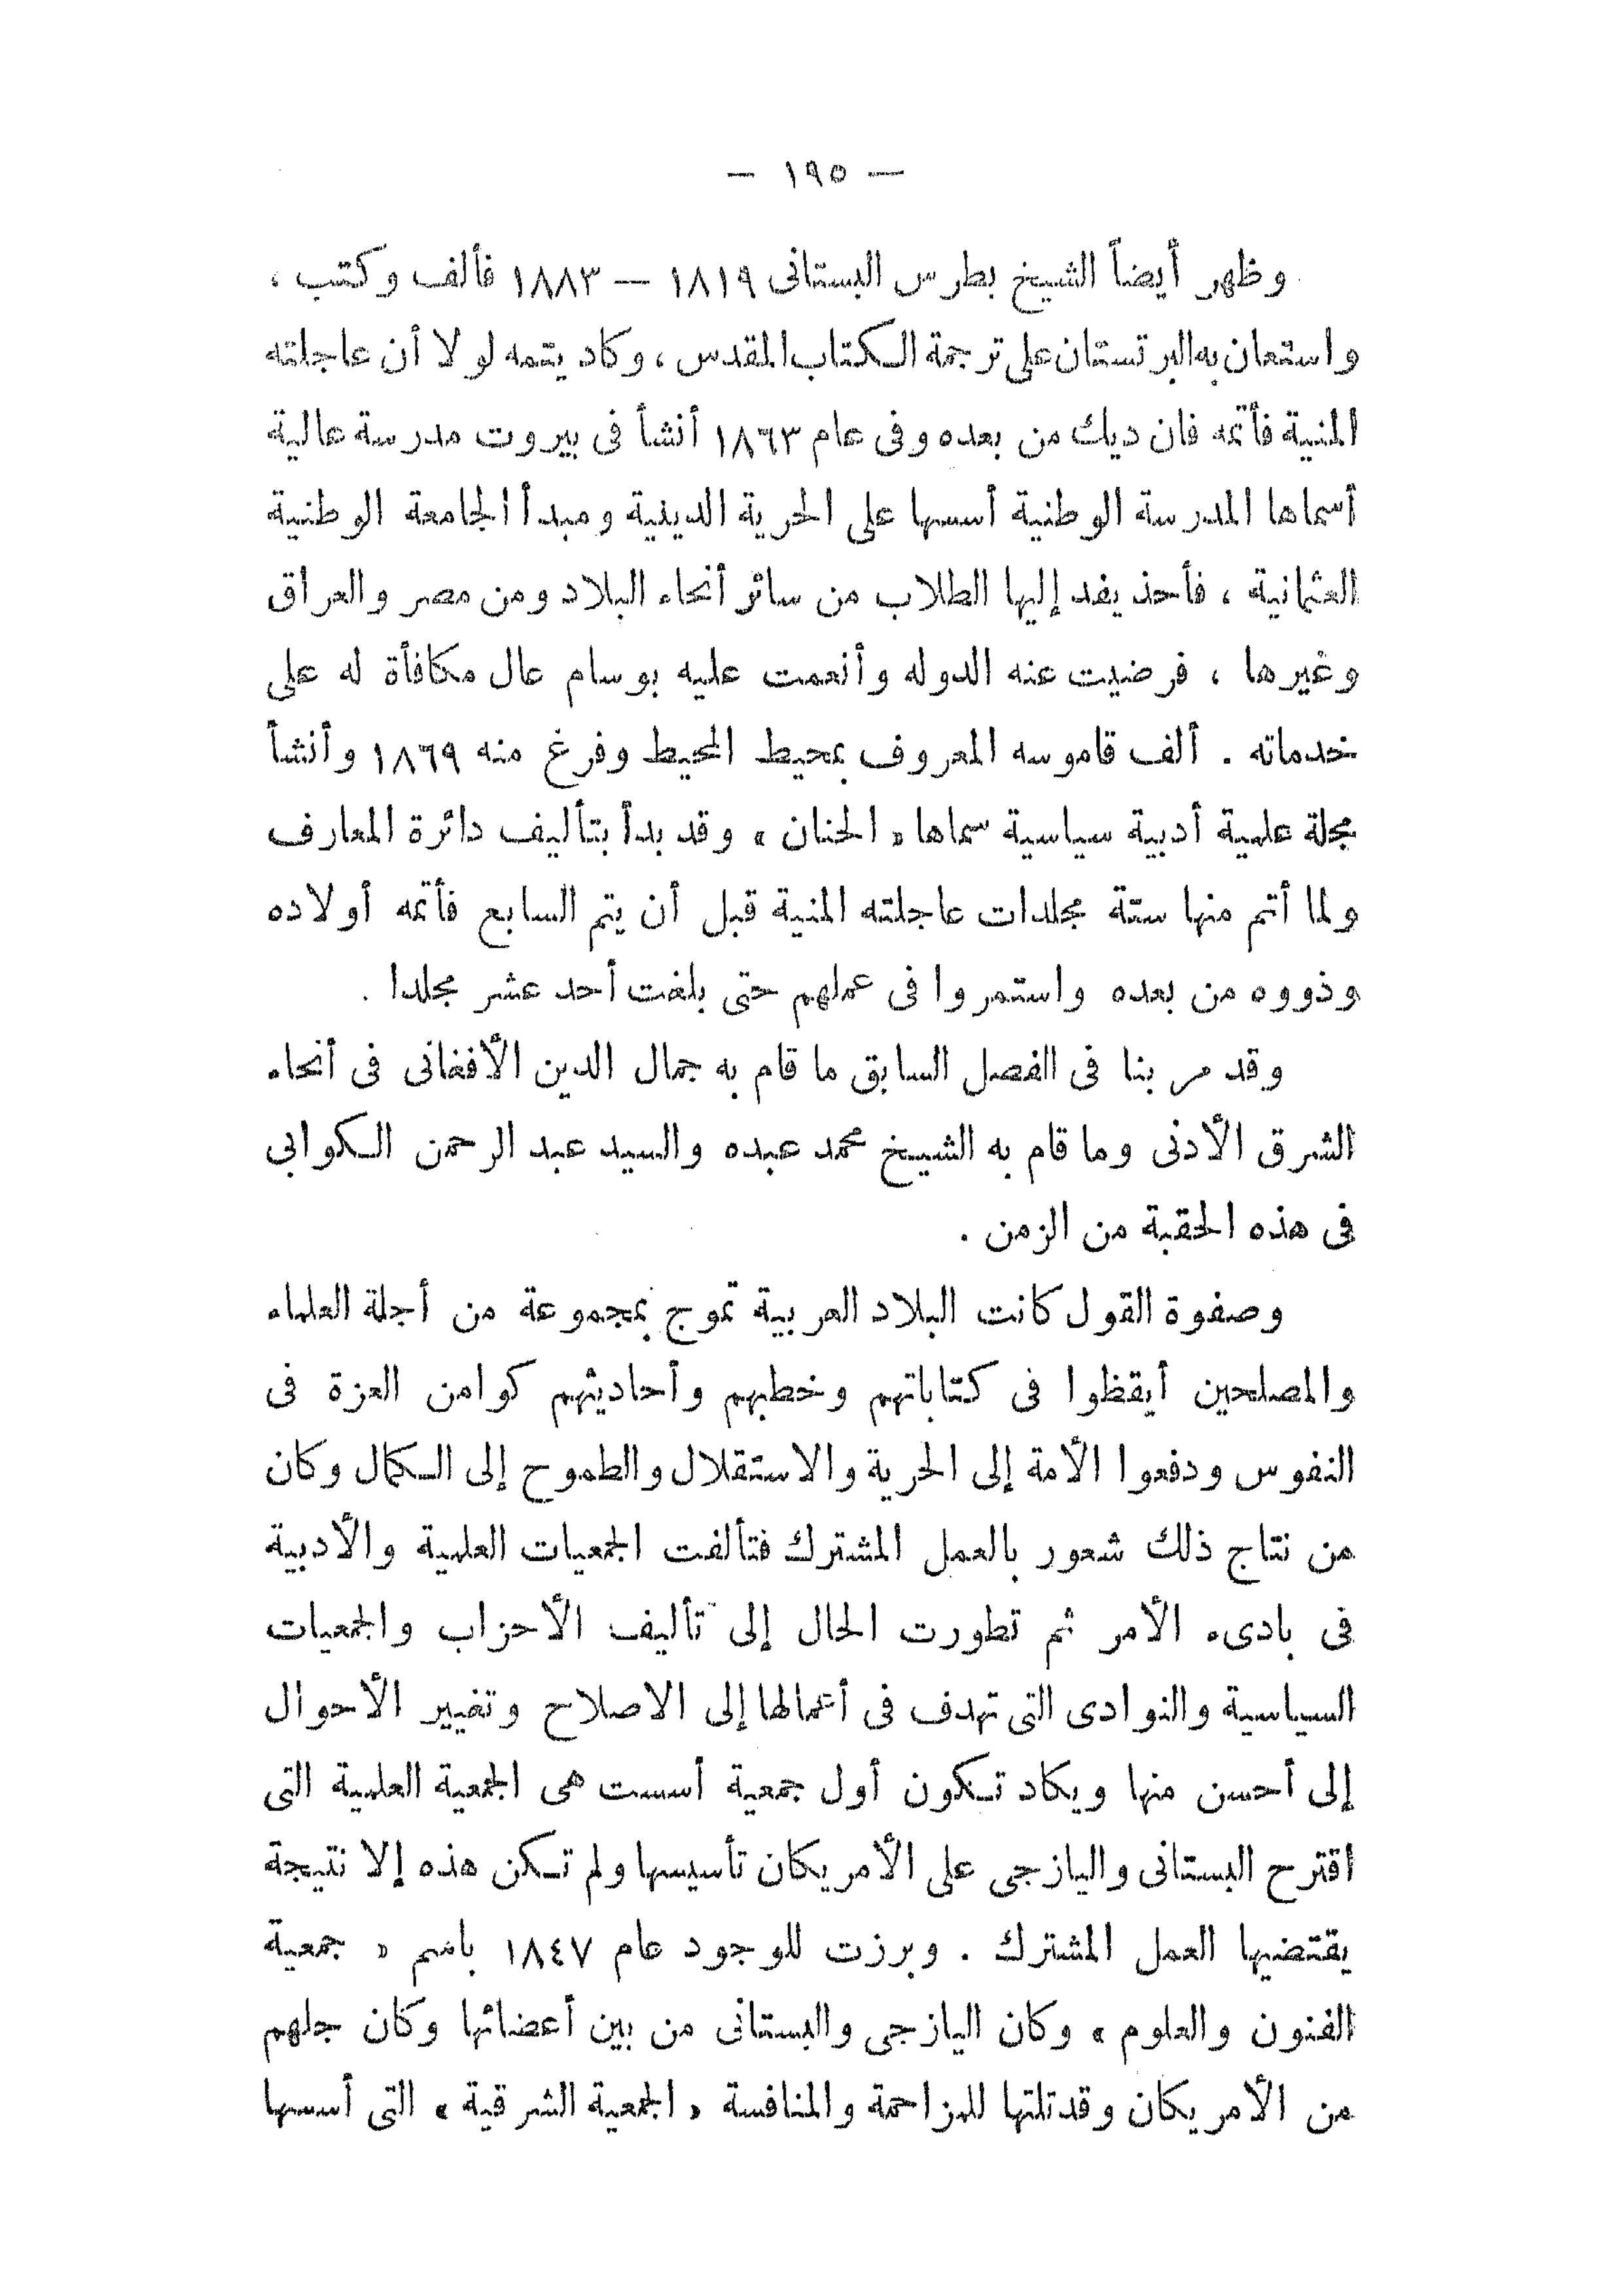 — ١٩٥ —
وظهر أيضاً الشيخ بطرس البستانى ١٨١٩ — ١٨٨٣ فألف وكتب ،
واستعان به البرتستان على ترجمة الكتاب المقدس ، وكاد يتمه لولا أن عاجلته
المنية فأتمه فان ديك من بعده وفى عام ١٨٦٣ أنشأ فى بيروت مدرسة عالية
أسماها المدرسة الوطنية أسسها على الحرية الدينية ومبدأ الجامعة الوطنية
العثمانية ، فأخذ يفد إليها الطلاب من سائر أنحاء البلاد ومن مصر والعراق
وغيرها ، فرضيت عنه الدوله وأنعمت عليه بوسام عال مكافأة له على
خدماته . ألف قاموسه المعروف بمحيط المحيط وفرغ منه ١٨٦٩ وأنشأ
مجلة علمية أدبية سياسية سماها « الحنان » وقد بدأ بتأليف دائرة المعارف
ولما أتم منها ستة مجلدات عاجلته المنية قبل أن يتم السابع فأتمه أولاده
وذووه من بعده واستمروا فى عملهم حتى بلغت أحد عشر مجلدا .
وقد مر بنا فى الفصل السابق ما قام به جمال الدين الأفغانى فى أنحاء
الشرق الأدنى وما قام به الشيخ محمد عبده والسيد عبد الرحمن الكوابى
فى هذه الحقبة من الزمن .
وصفوة القول كانت البلاد العربية تموج بمجموعة من أجلة العلماء
والمصلحين أيقظوا فى كتاباتهم وخطبهم وأحاديثهم كوامن العزة فى
النفوس ودفعوا الأمة إلى الحرية والاستقلال والطموح إلى الكمال وكان
من نتاج ذلك شعور بالعمل المشترك فتألفت الجمعيات العلمية والأدبية
فى بادىء الأمر ثم تطورت الحال إلى تأليف الأحزاب والجمعيات
السياسية والنوادى التى تهدف فى أعمالها إلى الاصلاح وتغيير الأحوال
إلى أحسن منها ويكاد تكون أول جمعية أسست هى الجمعية العلمية التى
اقترح البستانى واليازجى على الأمريكان تأسيسها ولم تكن هذه إلا نتيجة
يقتضيها العمل المشترك . وبرزت للوجود عام ١٨٤٧ باسم « جمعية
الفنون والعلوم » وكان اليازجى والبستانى من بين أعضائها وكان جلهم
من الأمريكان وقد تلتها للمزاحمة والمنافسة « الجمعية الشرقية » التى أسسها